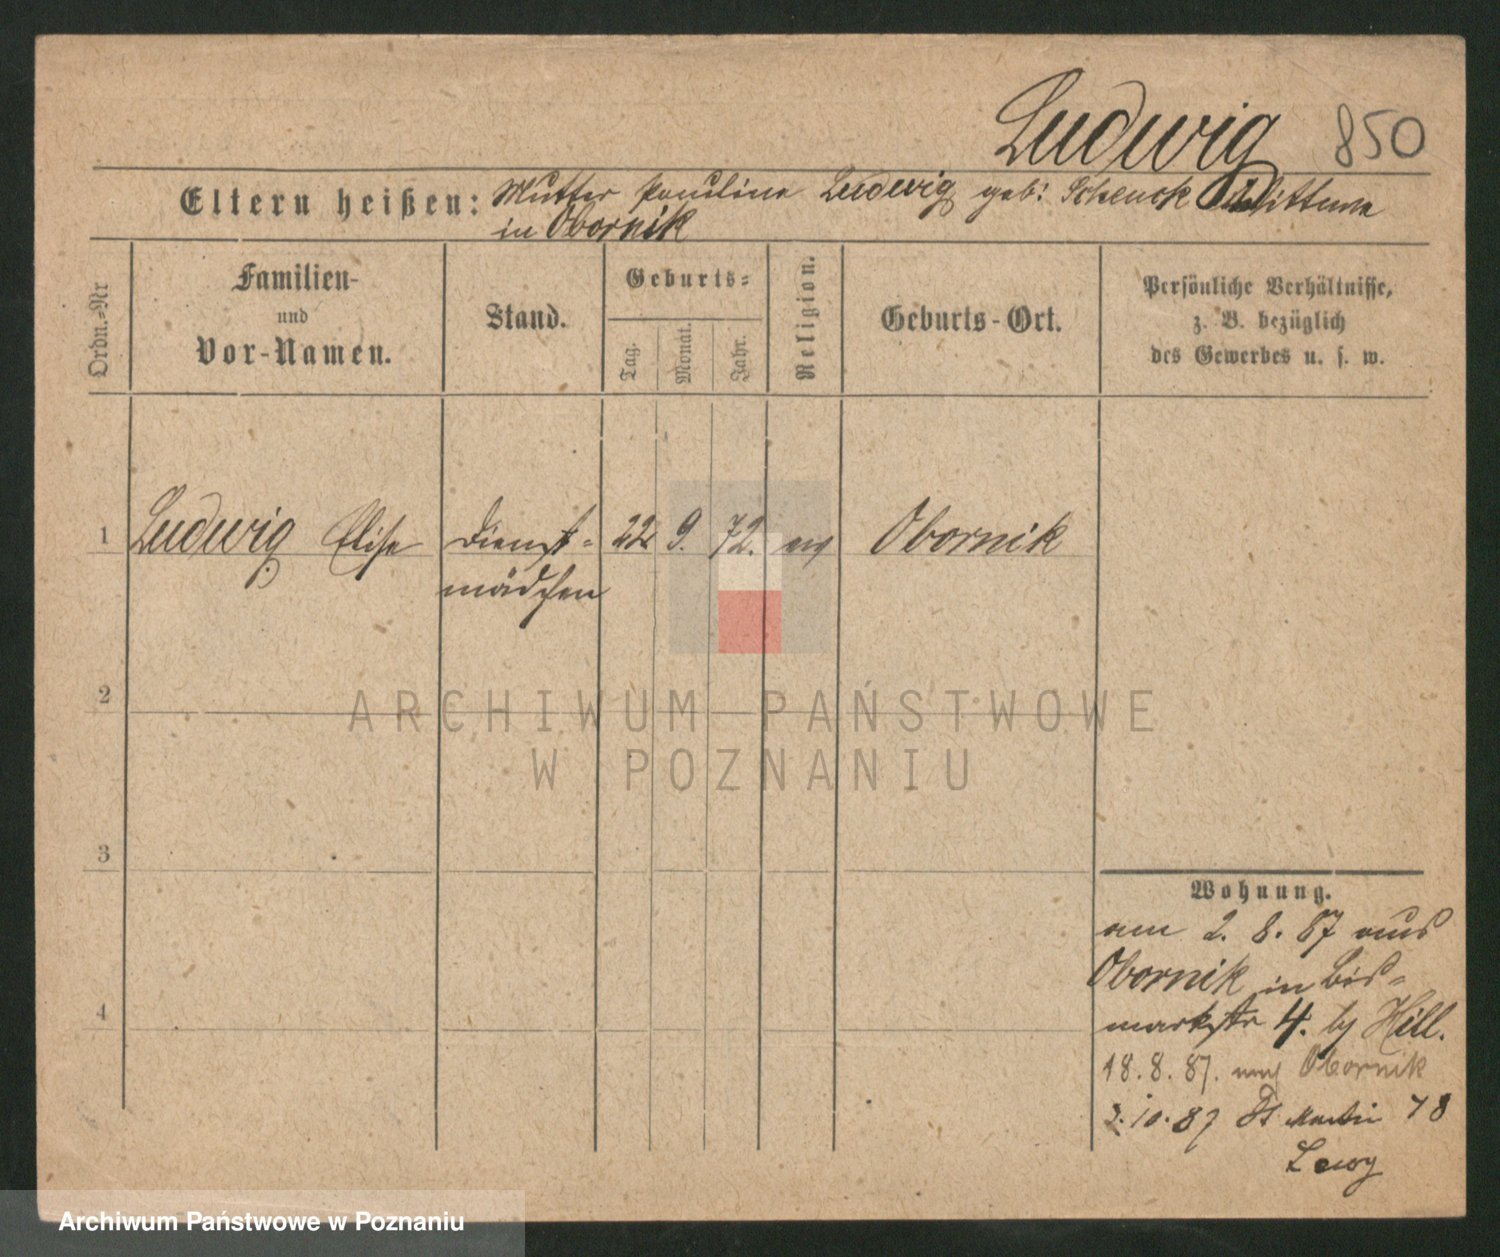 Ludwig 850
Eltern heißen: Mutter Pauline Ludwig geb: Schenck Wittwe
in Obornik
Ordn.-Nr
Familien-
und
Vor-Namen.
Stand.
Geburts-
Tag.
Monat.
Jahr.
Religion.
Geburts-Ort.
Persönliche Verhältnisse,
z. B. bezüglich
des Gewerbes u. s. w.
1 Ludwig Elise Dienst- 22 9. 72. ev Obornik
mädchen
2
3
4
ARCHIWUM PAŃSTWOWE
W POZNANIU
Wohnung.
am 2. 8. 87 aus
Obornik in Bis-
markstr 4. by Hill.
18. 8. 87. nach Obornik
2. 10. 87 St Martin 78
Lewy
Archiwum Państwowe w Poznaniu